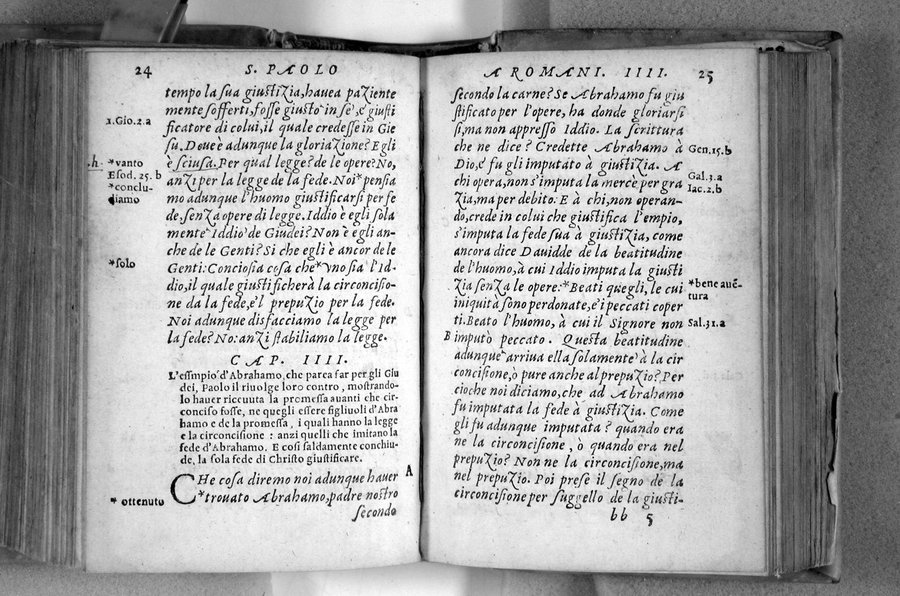 24 S. PAOLO
tempo la sua giustizia, hauea paziente
mente sofferti, fosse giusto in se, e giusti
1.Gio.2.a ficatore di colui, il quale credesse in Gie
su. Doue è adunque la gloriazione? Egli
.h. *vanto è sciusa. Per qual legge? de le opere? No,
Esod. 25. b anzi per la legge de la fede. Noi *pensia
*conclu- mo adunque l'huomo giustificarsi per fe
diamo de, senza opere di legge. Iddio è egli sola
mente Iddio de Giudei? Non è egli an-
che de le Genti? Si che egli è ancor de le
*solo Genti: Conciosia cosa che *vno sia l'Id-
dio, il quale giustificherà la circonsisio-
ne da la fede, e'l prepuzio per la fede.
Noi adunque disfacciamo la legge per
la fede? No: anzi stabiliamo la legge.
CAP. IIII.
L'essmpio d'Abrahamo, che parea far per gli Giu
dei, Paolo il riuolge loro contro, mostrando-
lo hauer riceuuta la promessa auanti che cir-
conciso fosse, ne quegli essere figliuoli d'Abra
hamo e de la promessa, i quali hanno la legge
e la circoncisione : anzi quelli che imitano la
fede d'Abrahamo. E cosi saldamente conchiu-
de, la sola fede di Christo giustificare.
CHe cosa diremo noi adunque hauer A
* ottenuto *trouato Abrahamo, padre nostro
secondo
A ROMANI. IIII. 25
secondo la carne? Se Abrahamo fu giu
stificato per l'opere, ha donde gloriarsi
si, ma non appresso Iddio. La scrittura
che ne dice? Credette Abrahamo à Gen.15.b
Dio, e fu gli imputato à giustizia. A
chi opera, non s'imputa la mercè per gra Gal.3.a
zia, ma per debito: E à chi, non operan- Iac.2.b
do, crede in colui che giustifica l'empio,
s'imputa la fede sua à giustizia, come
ancora dice Dauidde de la beatitudine
de l'huomo, à cui Iddio imputa la giusti
zia senza le opere: *Beati quegli, le cui *bene auē-
iniquita sono perdonate, e i peccati coper tura
ti. Beato l'huomo, à cui il Signore non Sal.31.a
B imputò peccato. Questa beatitudine
adunque arriua ella solamente à la cir
concisione, ò pure anche al prepuzio? Per
cioche noi diciamo, che ad Abrahamo
fu imputata la fede à giustizia. Come
gli fu adunque imputata? quando era
ne la circoncisione, ò quando era nel
prepuzio? Non ne la circoncisione, ma
nel prepuzio. Poi prese il segno de la
circoncisione per suggello de la giusti-
bb 5